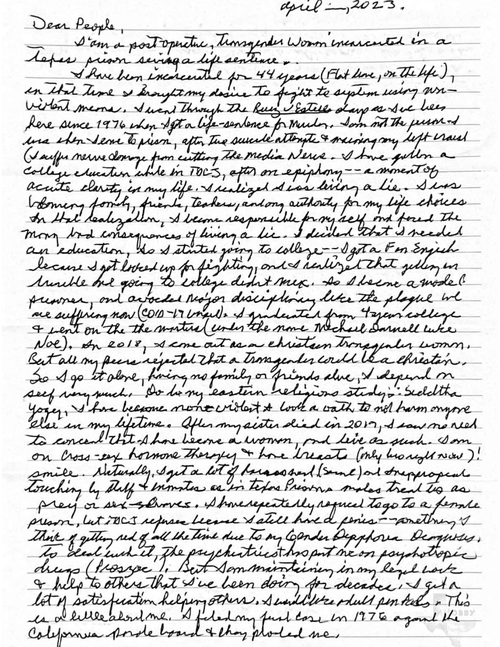 April —, 2023.
Dear People,
I am a post operative, transgender woman incarcerated in a
Texas prison serving a life sentence.
I have been incarcerated for 44 years (Flat time, on the life),
in that time I brought my desire to fight to system using non-
violent means. I went through the Ruiz v Estelle days as I've been
here since 1976 when I got a life-sentence for Murder. I am not the person I
was when I came to prison, after two suicide attempts & my left wrist
(I suffer nerve damage from cutting the media Nerve. I have gotten a
college education while in TDCJ, after an epiphany -- a moment of
acute clarity in my life. I realized I was living a lie. I was
blaming family, friends, teachers, and any authority for my life choices
In that realization, I became responsible for my self and faced the
many bad consequences of living a lie. I decided that I needed
an education, so I started going to college -- I got a F in English
because I got locked up for fighting, and I realized that getting in
trouble and going to college didn't mix. So I became a model
prisoner, and avoided major disciplinary like the plague we
are suffering now (COVID-19 ). I graduated from 4 year college
& went on the the masters (under the name Michael Darnell
Noe). In 2018, I came out as a christian transgender woman.
But all my peers rejected that a transgender could be a christian.
So I go it alone, having no family or friends alive, I depend on
self very much. Due to my eastern religions study: Siddhta
Yogy, I have become non violent & took a oath to not harm anyone
else in my lifetime. After my sister died in 2017, I saw no need
to conceal that I have become a woman, and live as such. I am
on Cross-sex hormone therapy & have breasts (only two right now)!
smile. Naturally, I get a lot of harassment (Sexual) and inappropriate
touching by staff & inmates as in Texas Prisons males treat us as
prey or sex-slaves. I have repeatedly request to go to a female
prison, but TDCJ refuses because I still have a penis -- something I
think of getting rid of all the time due to my Gender Dysphoria Diagnosis.
to deal with it, the psychiatrist has put me on psychotropic
drugs ( ). But I am maintaining in my legal work
& help to others that I've been doing for decades. I get a
lot of satisfaction helping others. I would like adult pen pals. This
is a little about me. I filed my first case in 1976 against the
California parole board & they paroled me.